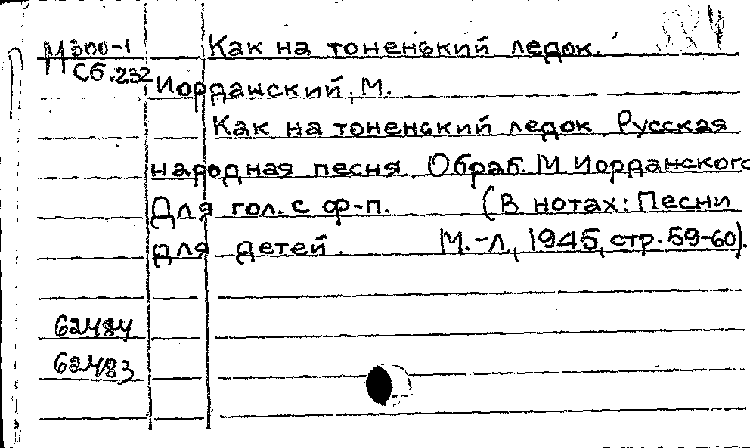 М 300-1 Как на тоненький ледок.
Сб.232
Иорданский, М.
Как на тоненький ледок. Русская
народная песня. Обраб. М. Иорданского
Для гол. с ф-п. (В нотах: Песни
для детей. М.-Л, 1945, стр. 59-60).
62484
62483